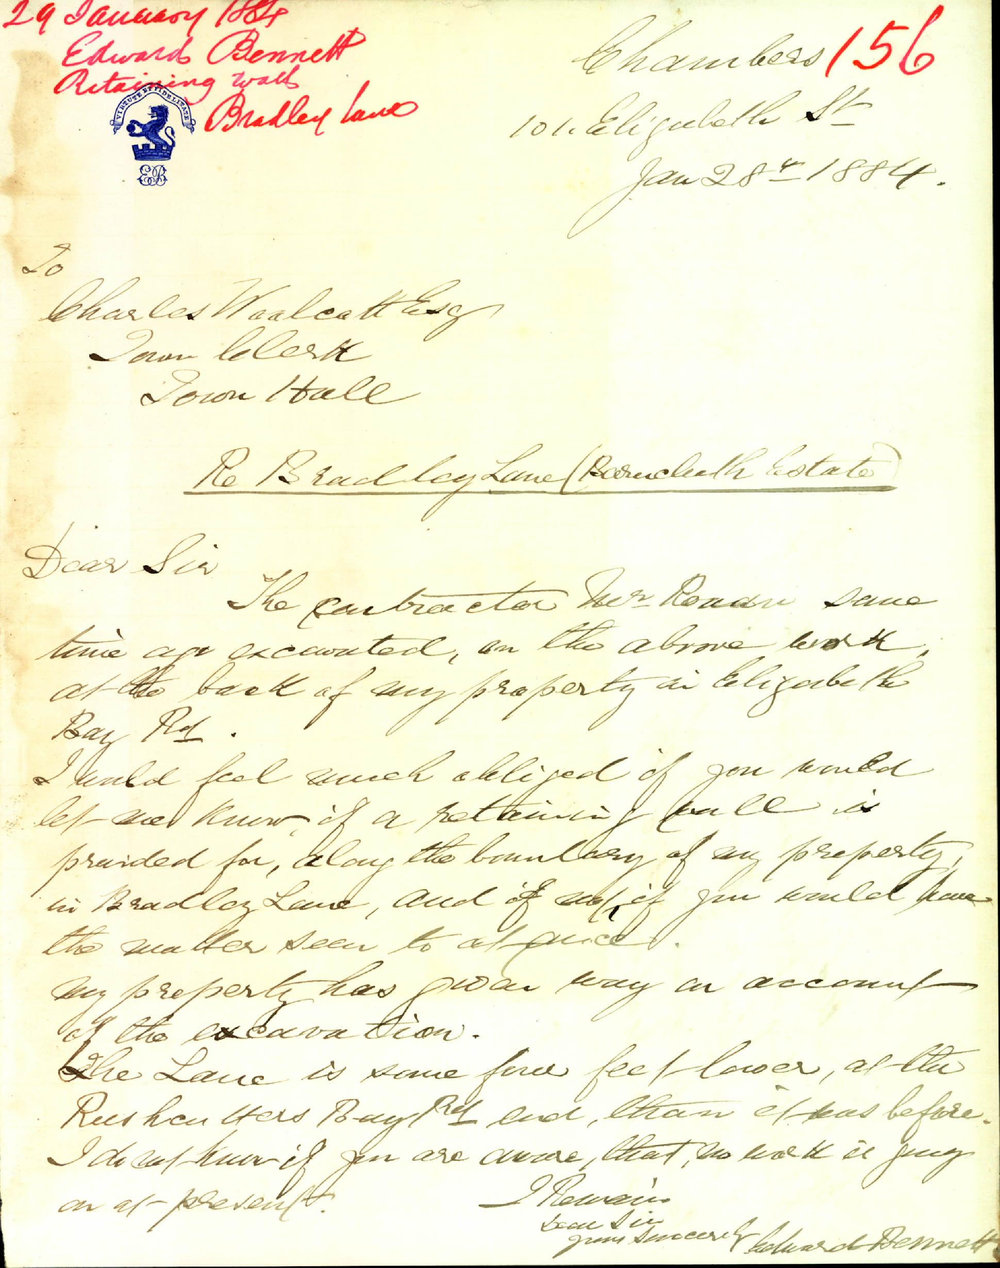 29 January 1884
Edward Bennett
Retaining Wall
Bradley Lane
156
VIRTUTE ET FIDELITATE
EB
Chambers
101 Elizabeth St
Jan 28th 1884.
To
Charles Woolcott Esq
Town Clerk
Town Hall
Re Bradley Lane (Barncleuth Estate)
Dear Sir
The contractor Mr Ronan some
time ago excavated, on the above work,
at the back of my property in Elizabeth
Bay Rd.
I would feel much obliged if you would
let me know, if a retaining wall is
provided for, along the boundary of my property,
in Bradley Lane, and if not, if you would have
the matter seen to at once.
My property has given way on account
of the excavation.
The Lane is some four feet lower, at the
Rushcutters Bay Rd end, than it was before.
I do not know if you are aware, that, no work is going
on at present.
I Remain
Dear Sir
yours sincerely
Edward Bennett